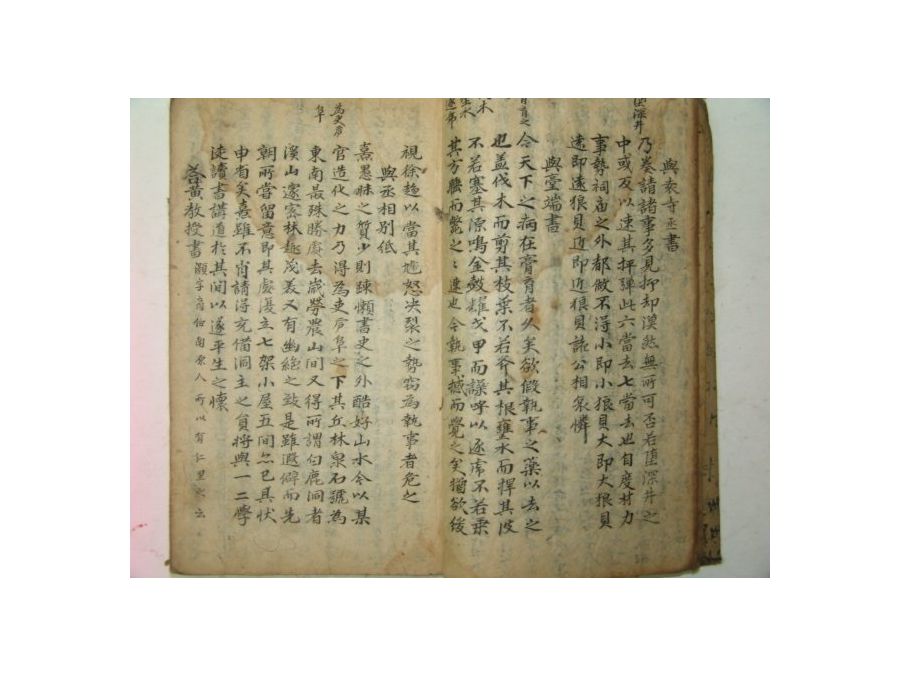 與袁寺丞書
乃奏請諸事多見抑却漠然無所可否若墮深井之
中或反以速其抨彈此六當去七當去也自度材力
事勢祠庙之外都做不得小即小狼貝大即大狼貝
遠即遠狼貝近即近狼貝諒公相哀憐
與臺端書
今天下之病在膏肓者久矣欲假執事之藥以去之
也盖伐木而剪其枝葉不若斧其根壅水而捍其波
不若塞其源鳴金鼓耀戈甲而譟呼以逐虎不若乘
其方睡而斃之〻速也今執事撼而覺之矣猶欲後
視徐趍以當其怒决裂之勢窃為執事者危之
與丞相別紙
為吏戶阜
熹愚昧之質少則踈懶書史之外酷好山水今以某
官造化之力乃得為吏戶阜之下其丘林泉石號為
東南最殊勝處去歲勞農山間又得所謂白鹿洞者
溪山邃密林趣茂美又有幽絶之致是雖遐僻而先
朝所嘗留意即其處復立七架小屋五間尔已具狀
申省矣熹雖不肖請得充備洞主之負將與一二學
徒讀書講道於其間以遂平生之懷
答黃教授書 顥字商伯南原人所以有仁里之云